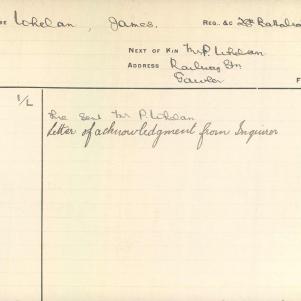 Whelan, James. REG. &c 27th Battalion
NEXT OF KIN Mr P. Whelan
ADDRESS Railway Stn
Gawler
1/L
Pre sent Mr P. Whelan
Letter of acknowledgment from Inquirer